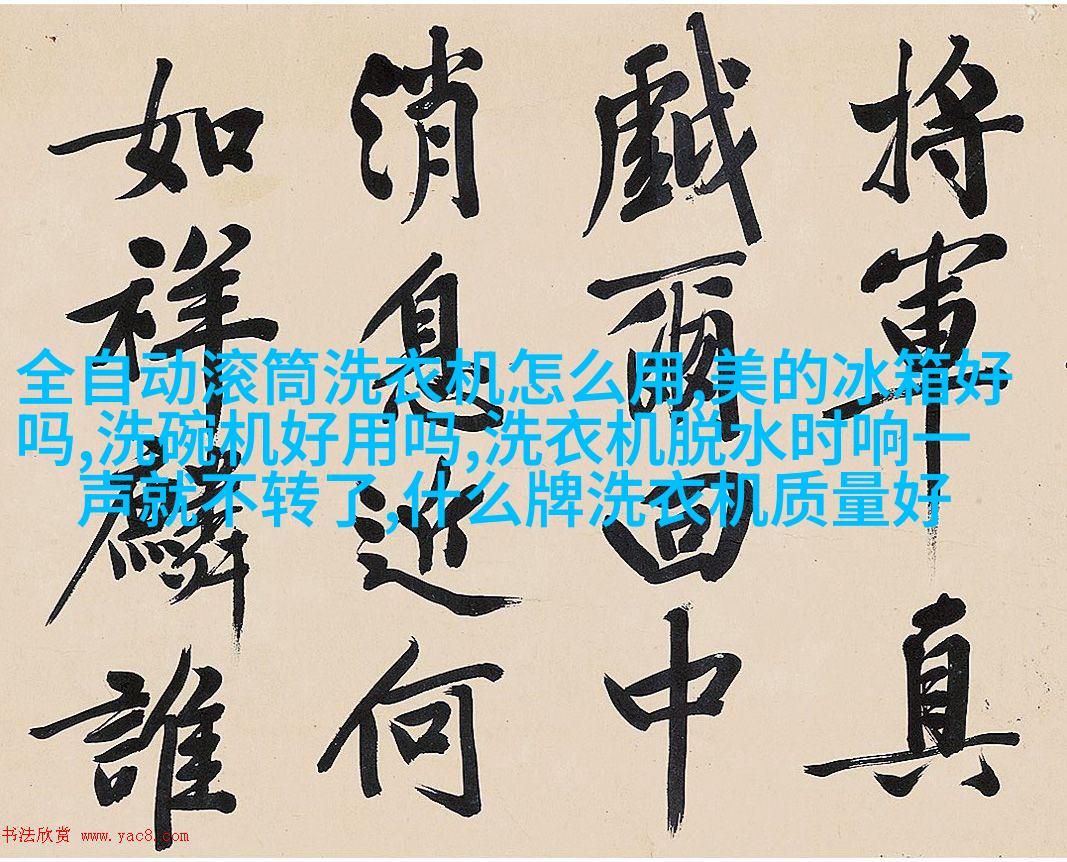 將軍真
戲兩回中
消息近何
如祥麟誰
全自动滚筒洗衣机怎么用,美的冰箱好
吗,洗碗机好用吗,洗衣机脱水时响一
声就不转了,什么牌洗衣机质量好
书法欣赏 www.yac8.com